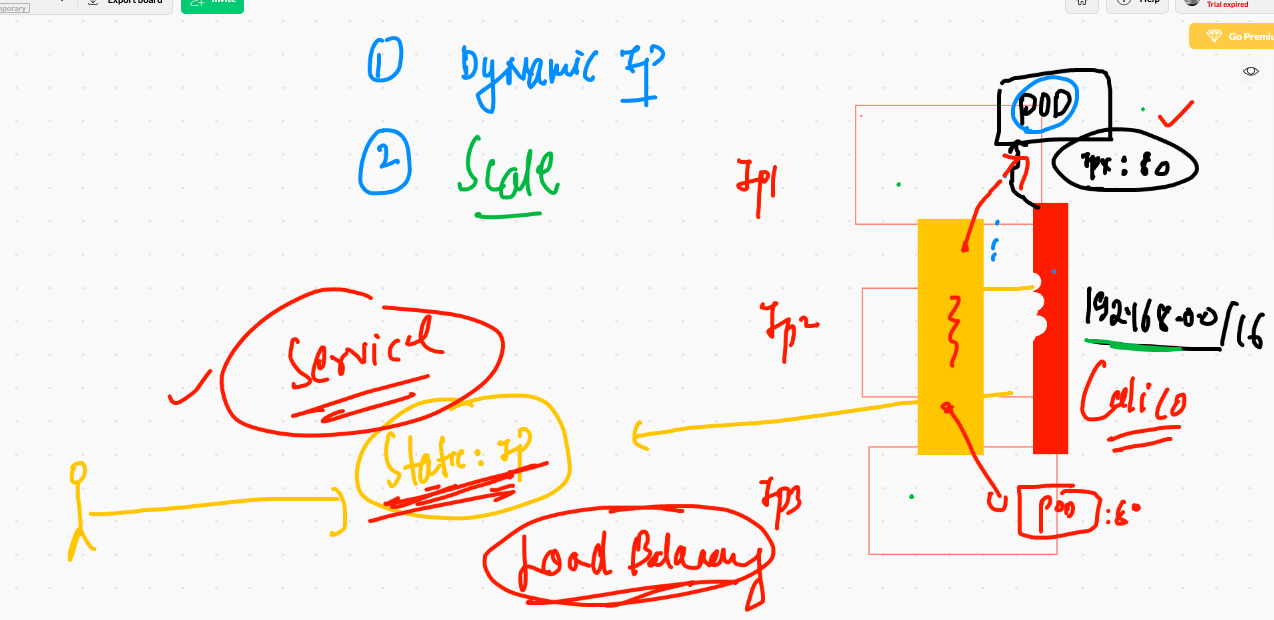 Export board
Invite
Help
Trial expired
Go Premiu
1 Dynamic Ip
2 Scale
POD
Ipx : 80
Ip1
Ip2
192.168.0.0/16
Calico
Service
Static : Ip
Ip3
POD : 80
Load Balancing